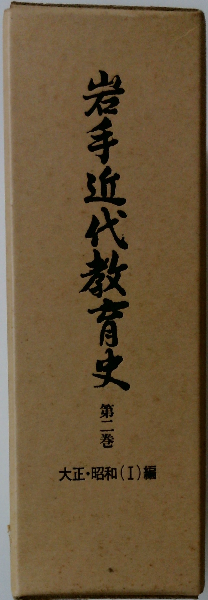 岩手近代教育史
第二巻
大正・昭和(Ⅰ)編